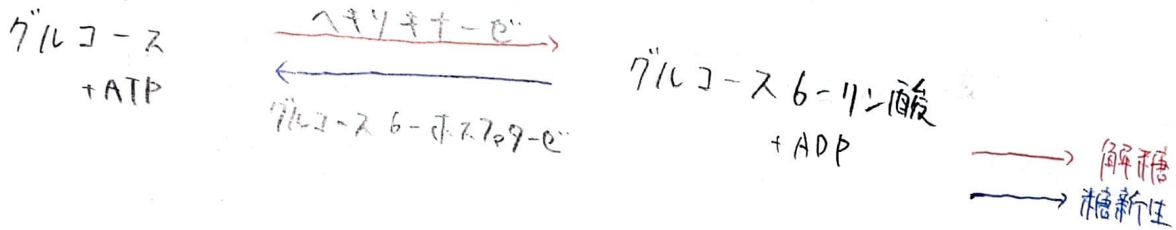 グルコース
+ATP
ヘキソキナーゼ
グルコース 6-ホスファターゼ
グルコース 6-リン酸
+ADP
解糖
糖新生